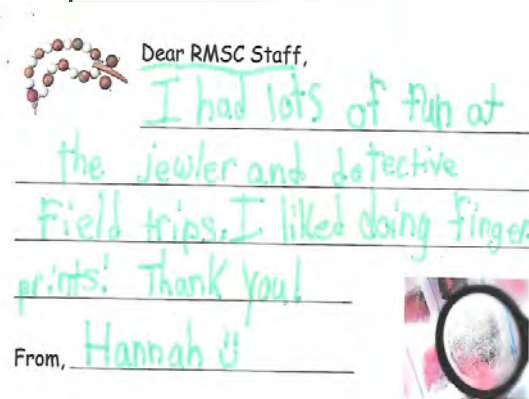 Dear RMSC Staff,
I had lots of fun at
the jewler and detective
Field trips. I liked doing finger
prints! Thank you!
From, Hannah ü